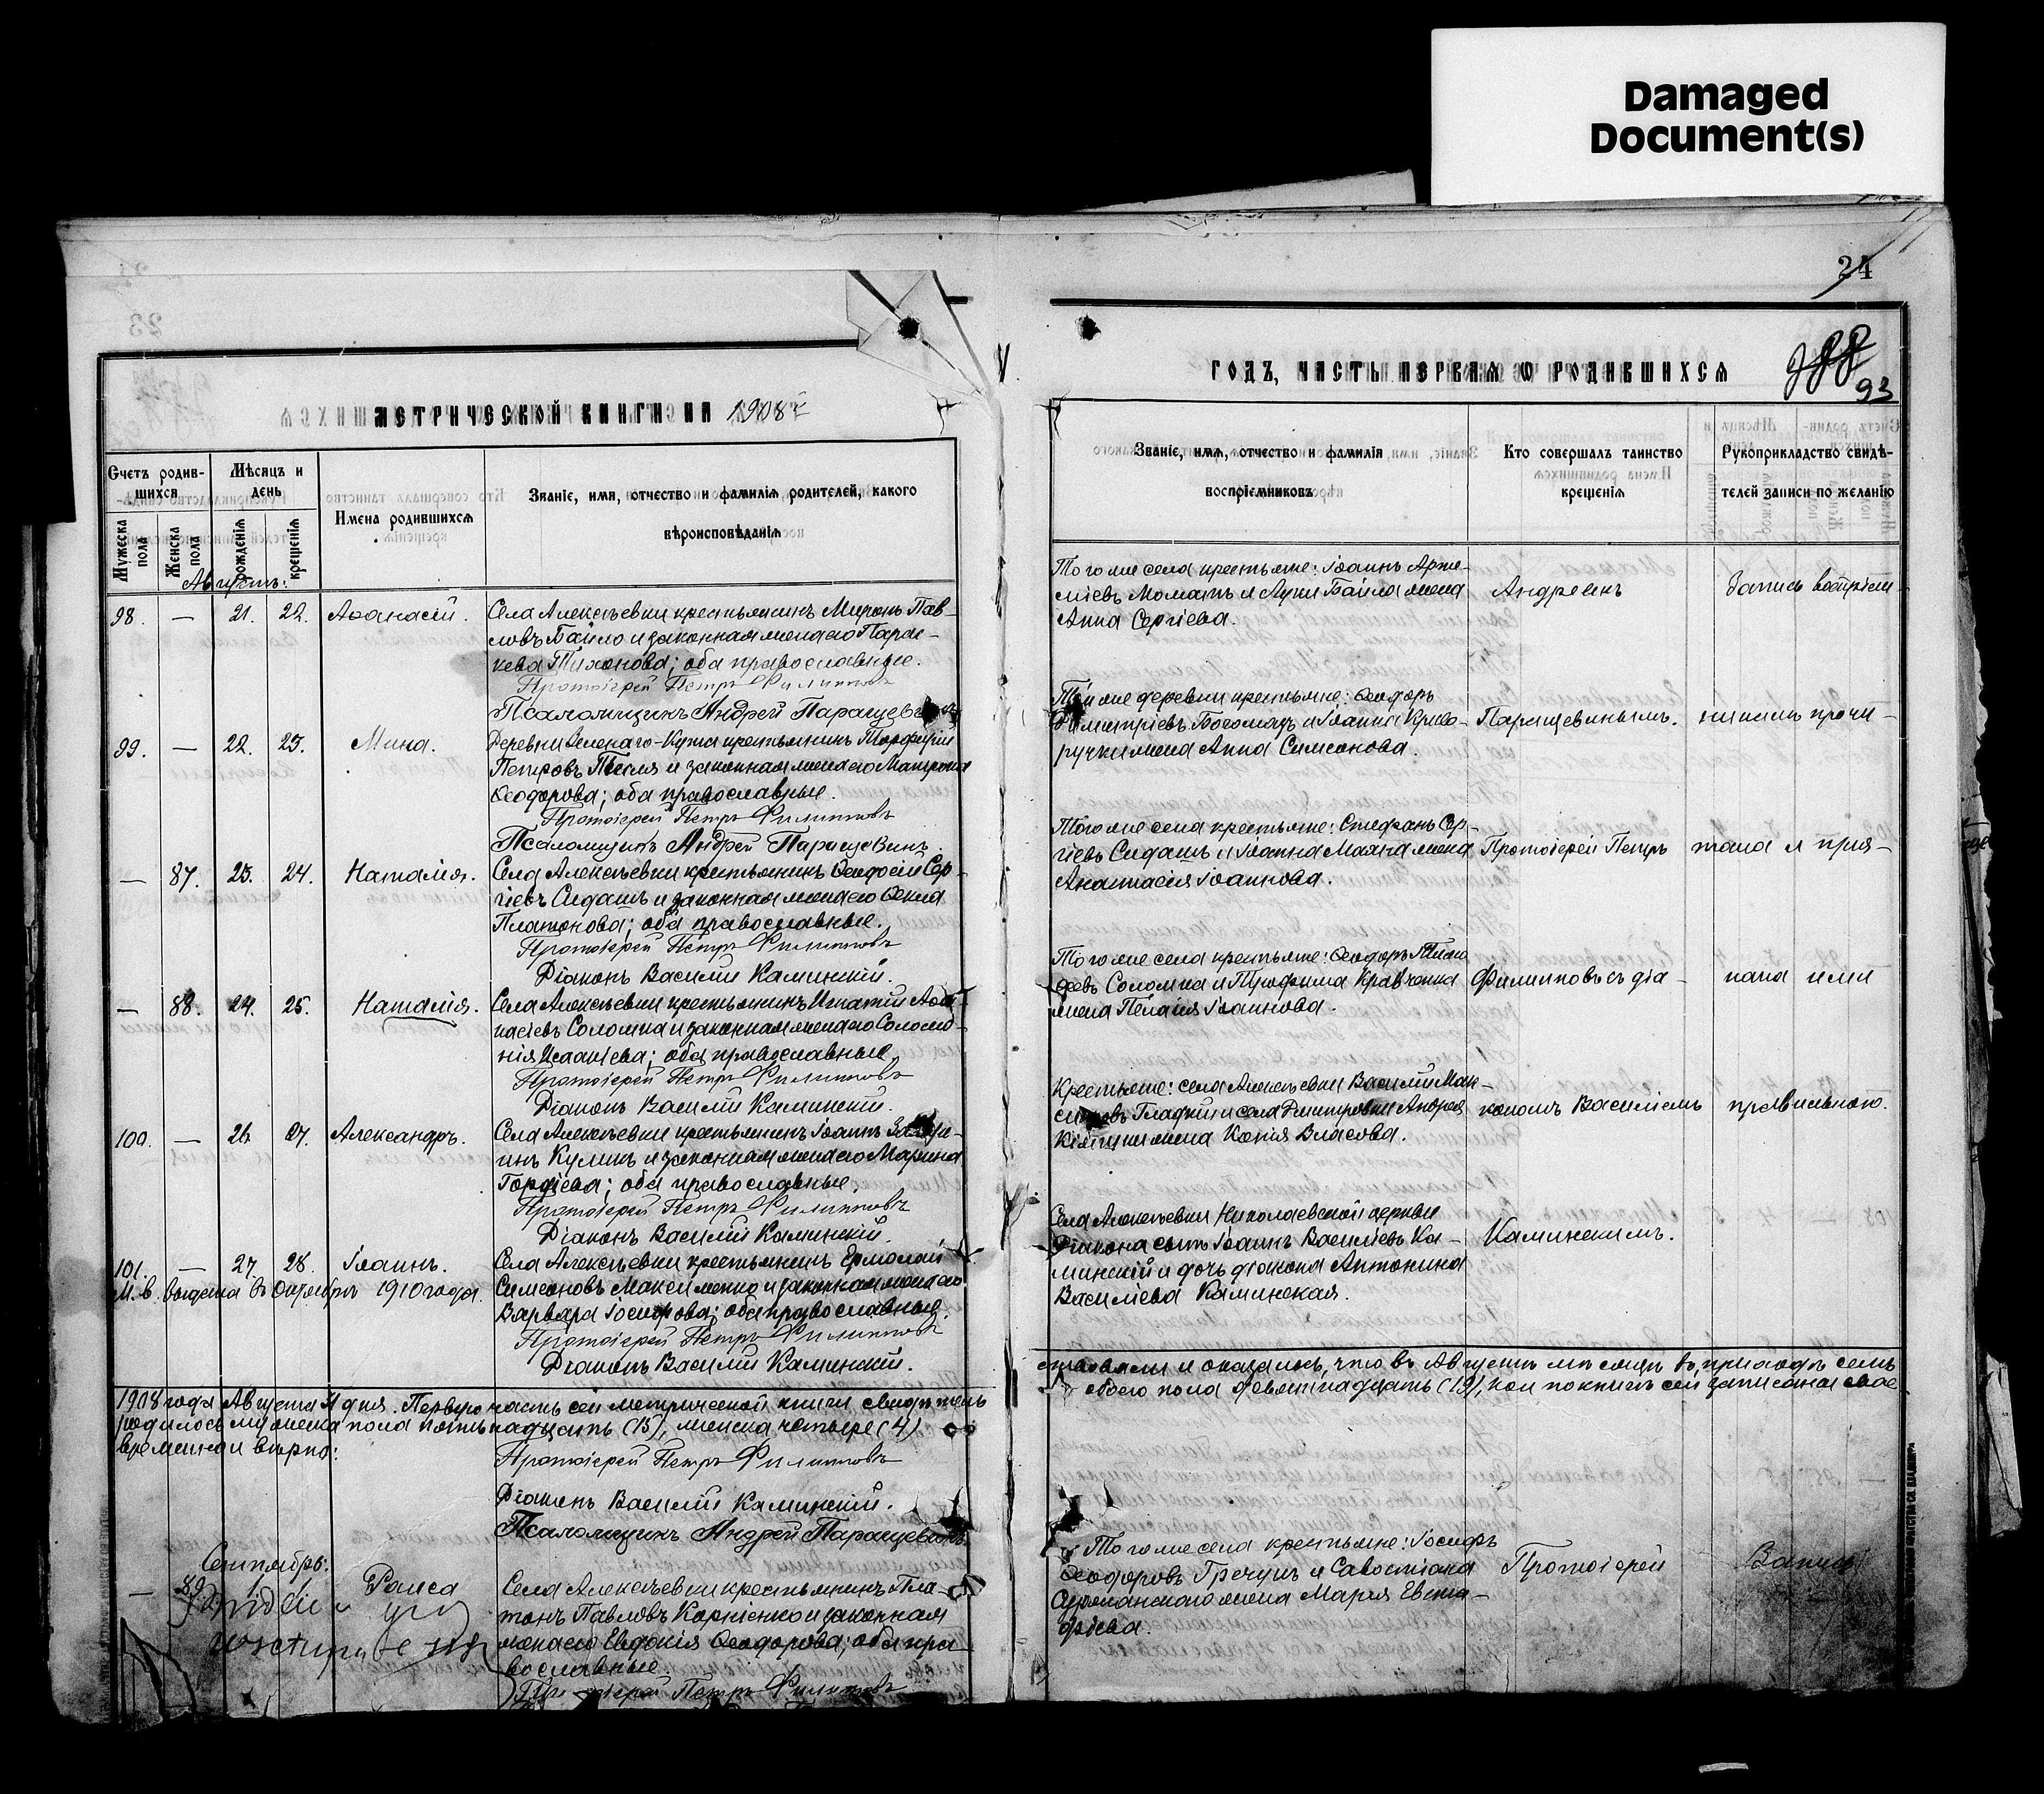 Damaged
Document(s)
24
МЕТРИЧЕСКОЙ КНИГИ НА 1908й
Счетъ родив-
шихся
Мѣсяцъ и
день
Имена родившихся
Званіе, имя, отчество и фамилія родителей, какого
вѣроисповѣданія
Мужеска
пола
Женска
пола
рожденія
крещенія
Августъ:
98. — 21. 22. Аѳанасій. Села Алексѣевки крестьянинъ Миронъ Пав-
ловъ Байло и законная жена его Парас-
кева Тихонова; оба православные.
Протоіерей Петръ Филипповъ
Псаломщикъ Андрей Паращевинъ
99. — 22. 23. Мина. Деревни Зеленаго-Кута крестьянинъ Порфирій
Петровъ Тесля и законная жена его Матрона
Ѳеодорова; оба православные.
Протоіерей Петръ Филипповъ
Псаломщикъ Андрей Паращевинъ.
— 87. 23. 24. Наталія. Села Алексѣевки крестьянинъ Ѳеодосій Сер-
гіевъ Сидашъ и законная жена его Ѳекла
Платонова; оба православные.
Протоіерей Петръ Филипповъ
Діаконъ Василій Каминскій.
— 88. 24. 25. Наталія. Села Алексѣевки крестьянинъ Игнатій Аѳа-
насіевъ Соломка и законная жена его Соломо-
нія Исаакіева; оба православные.
Протоіерей Петръ Филипповъ
Діаконъ Василій Каминскій.
100. — 26. 27. Александръ. Села Алексѣевки крестьянинъ Іоаннъ
инъ Куликъ и законная жена его Марина
Гордіева; оба православные.
Протоіерей Петръ Филипповъ
Діаконъ Василій Каминскій.
101. — 27. 28. Іоаннъ. Села Алексѣевки крестьянинъ Ермолай
М. в. выдана въ Октябрѣ 1910 года. Симеоновъ Максименко и законная жена его
Варвара Іосифова; оба православные.
Протоіерей Петръ Филипповъ
Діаконъ Василій Каминскій.
1908 года Августа 31 дня. Первую часть сей метрической книги свидѣтель
родилось мужеска пола пятьнадцать (15), женска четыре (4)
временно и вѣрно:
Протоіерей Петръ Филипповъ
Діаконъ Василій Каминскій.
Псаломщикъ Андрей Паращевинъ
Сентябрь:
— 89. 1. Раиса Села Алексѣевки крестьянинъ Пла-
тонъ Павловъ Корніенко и законная
жена его Евдокія Ѳеодорова; оба пра-
вославные.
Протоіерей Петръ Филипповъ
ГОДЪ, ЧАСТЬ ПЕРВАЯ О РОДИВШИХСЯ
93
Званіе, имя, отчество и фамилія
воспріемниковъ
Кто совершалъ таинство
крещенія
Рукоприкладство свидѣ-
телей записи по желанію
Того же села крестьяне: Іоаннъ Арте-
міевъ Моматъ и Луки Байла жена
Анна Сергіева.
Андреемъ
Запись воспріем-
Той же деревни крестьяне: Ѳеодоръ
Димитріевъ Богомазъ и Іоанна Криво-
ручки жена Анна Симеонова.
Паращевинымъ.
никамъ прочи-
Того же села крестьяне: Стефанъ Сер-
гіевъ Сидашъ и Іоанна Махна жена
Анастасія Іоаннова.
Протоіерей Петръ
тана и приз-
Того же села крестьяне: Ѳеодоръ
Соломка и Трофима Кравченка
жена Пелагія Іоаннова.
Филипповъ съ діа-
нана ими
Крестьяне: села Алексѣевки Василій Мак-
симовъ Гладкій и села Дмитровки Андрея
жена Ксенія Власова.
кономъ Василіемъ
правильною.
Села Алексѣевки Николаевской церкви
діакона сынъ Іоаннъ Василіевъ Ка-
минскій и дочь діакона Антонина
Василіева Каминская.
Каминскимъ.
ствовали и оказалось, что въ Августѣ мѣсяцѣ въ приходѣ семъ
обоего пола девятнадцать (19), кои по книгѣ сей записаны свое
Того же села крестьяне: Іосифъ
Ѳеодоровъ Гречунъ и Савостіана
жена Марія Евста-
фіева.
Протоіерей
Запись